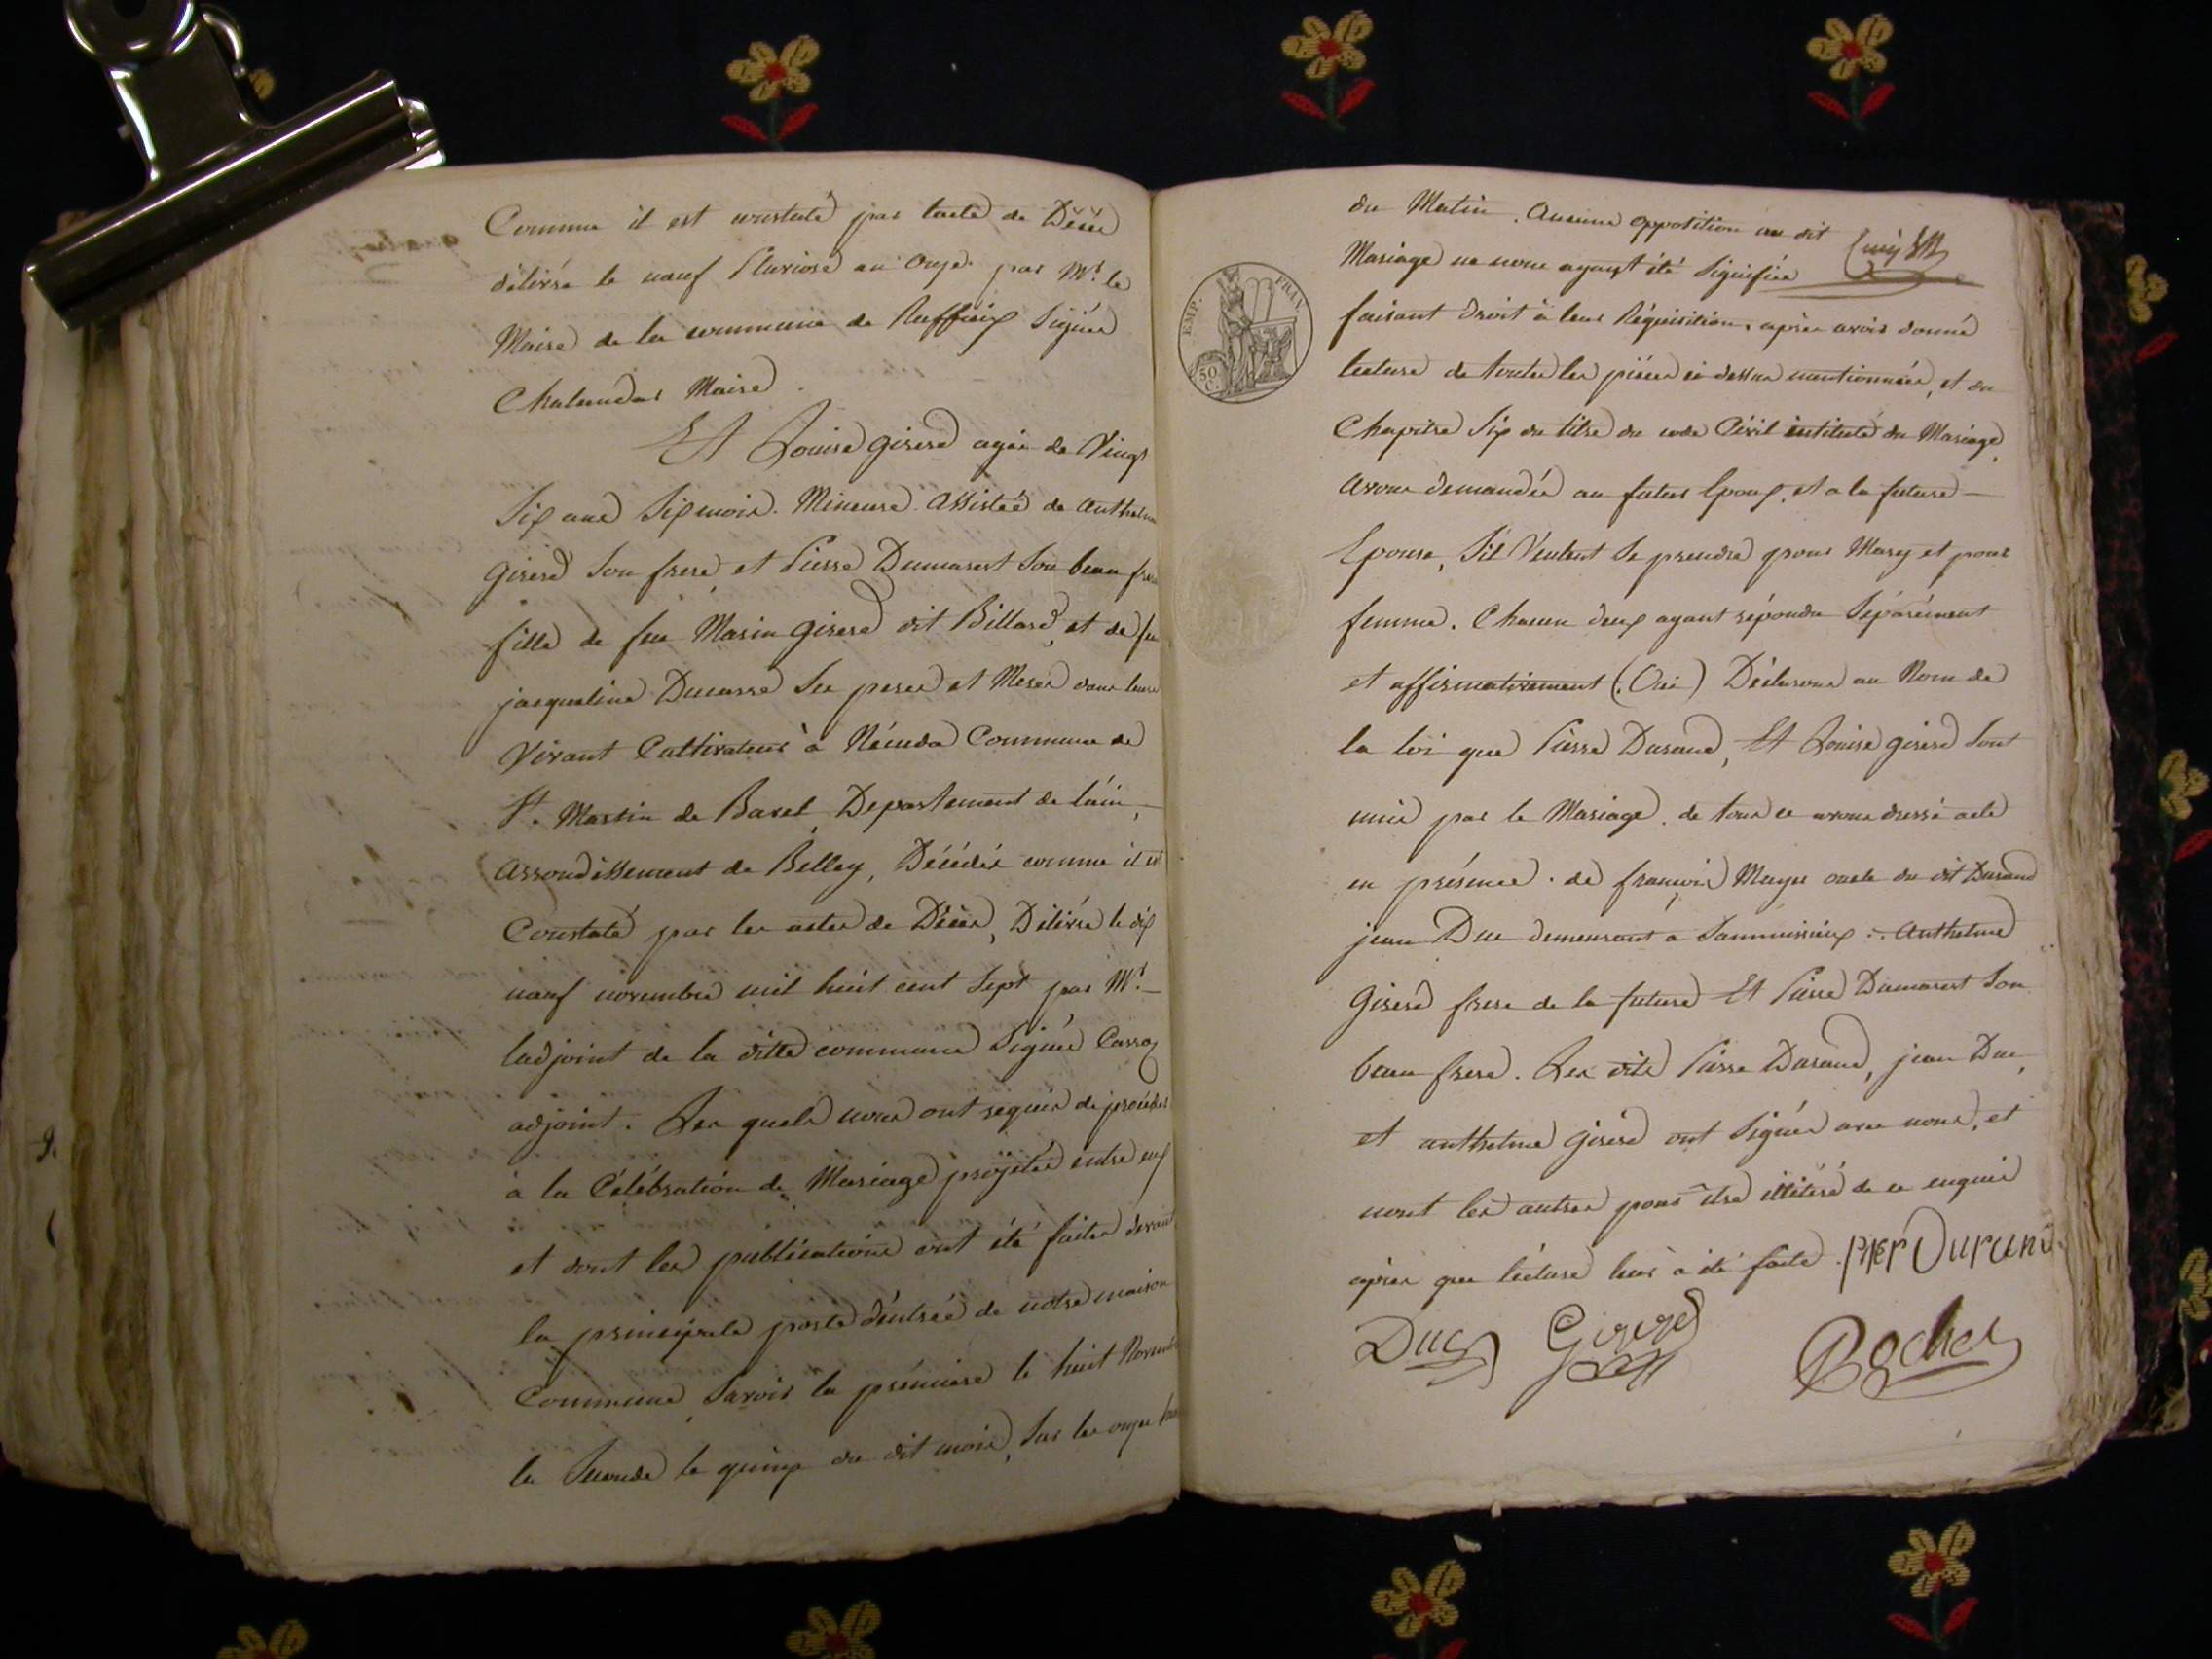 Comme il est constaté par lacte de Décès
délivré le neuf Pluviose an Onze par Mr. le
Maire de la commune de Ruffieux Signée
Maire.
Et Louise girerd agée de Vingt
Six ans Six mois. Mineure. Assistée de Anthelme
girerd Son frere et Pierre Dumarest Son beau frere
fille de feu Marin girerd dit Billard, et de feu
jacqueline Ducarre Ses peres et Meres dans leurs
Vivant Cultivateur à Commune de
St. Martin de Bavel, Departement de lain,
Arrondissement de Belley, Décédés comme il est
Constaté par les actes de Décès, Délivrés le dix
neuf novembre mil huit cent Sept par Mr.
ladjoint de la ditte commune Signée
adjoint. Les quels nous ont requis de procéder
à la Célébration de Mariage projetée entre eux
et dont les publications ont été faites devant
la principale porte d'éntrée de notre maison
Commune, Savoir la premiere le huit Novembre
la Seconde le quinze du dit mois, Sur les onze heures
du Matin. Aucune opposition au dit
Mariage ne nous ayant été Signifiée
faisant droit à leur Réquisition, après avoir donné
lecture de toutes les pièces ci dessus mentionnées, et du
Chapitre Six du titre du code Civil intitulé du Mariage,
avons demandés au futur Epoux, et a la future
Epouse, S'il Veulent Se prendre pour Mary et pour
femme. Chacun deux ayant répondu Séparément
et affirmativement (Oui) Déclarons au Nom de
la loi que Pierre Durand, Et Louise girerd Sont
unis par le Mariage. de tous ce avons dressé acte
en présence. de françois oncle du dit Durand
jean Duc demeurant a . Anthelme
Girerd frere de la future Et Pierre Dumarest Son
beau frere. Les dits Pierre Durand, jean Duc,
et anthelme girerd ont Signés avec nous, et
nont les autres pour être illitéré de ce enquis
après que lécture leur à été faite. Pier Durand
Duc Girerd Bochet
EMP. FRAN.
50 C.